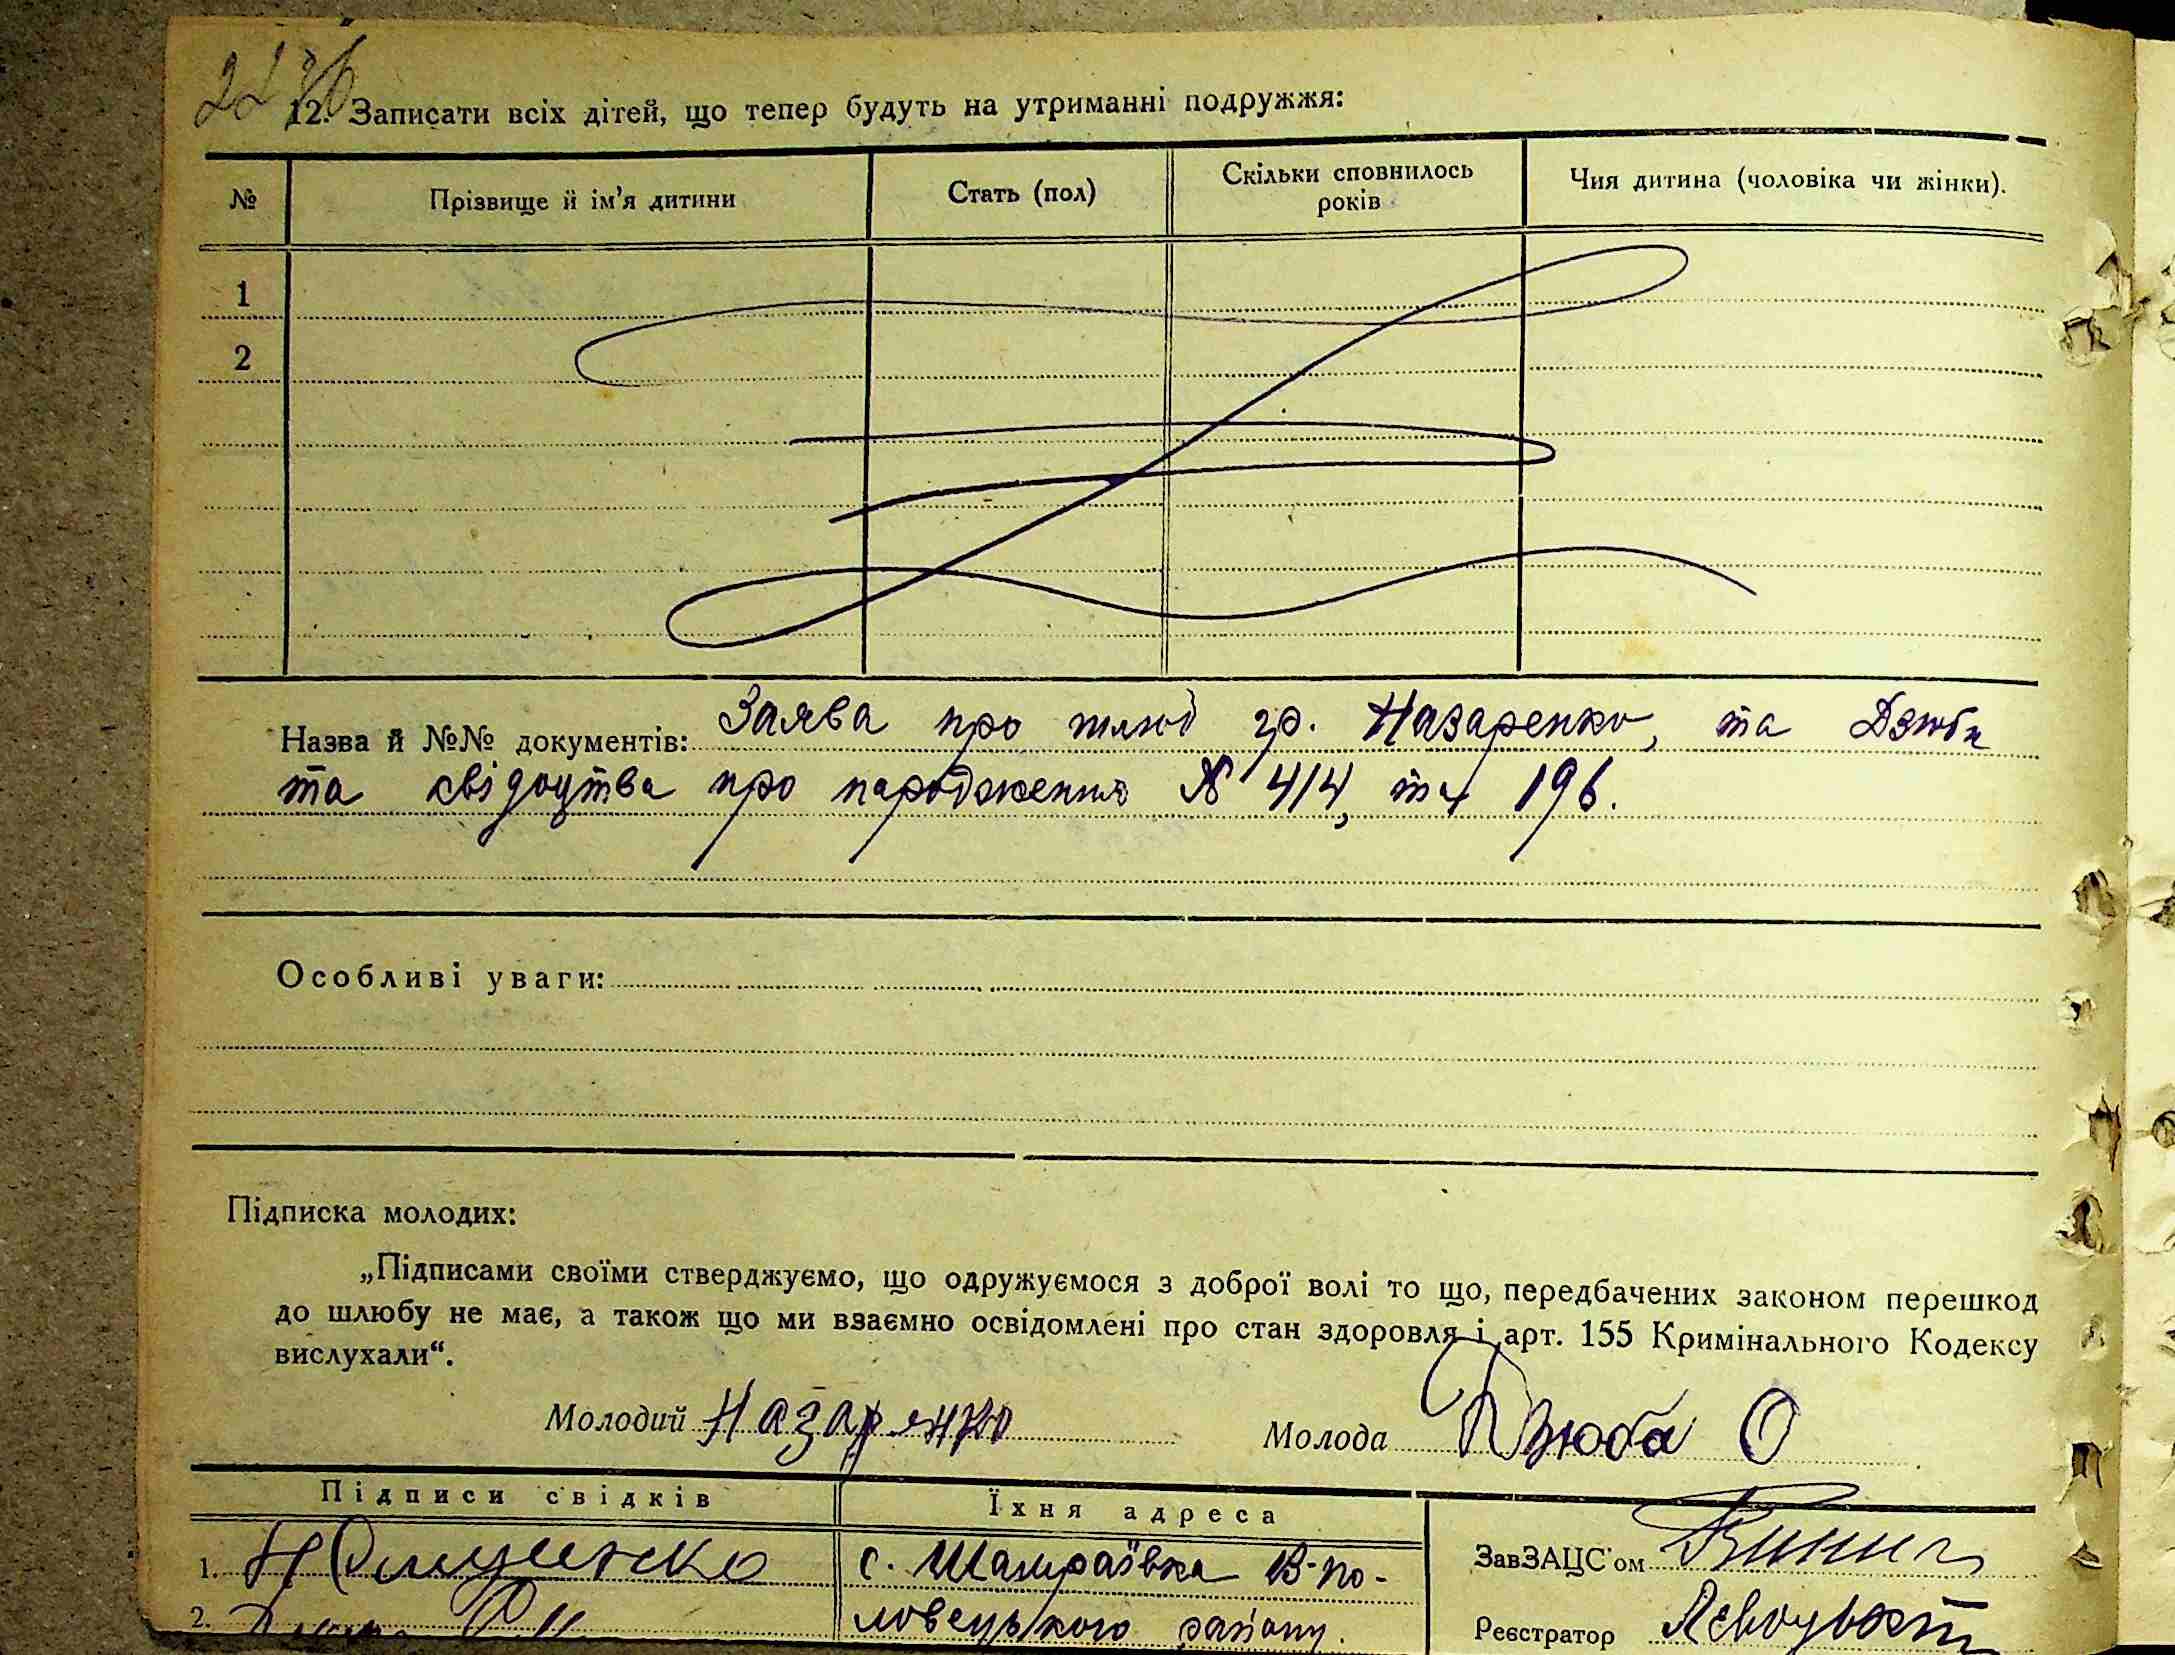 22
12. Записати всіх дітей, що тепер будуть на утриманні подружжя:
№ Прізвище й ім'я дитини Стать (пол) Скільки сповнилось років Чия дитина (чоловіка чи жінки).
1
2
Назва й №№ документів: Заява про шлюб гр. Назаренко, та Дзюби
та свідоцтва про народження № 414, та 196.
Особливі уваги:
Підписка молодих:
„Підписами своїми стверджуємо, що одружуємося з доброї волі то що, передбачених законом перешкод
до шлюбу не має, а також що ми взаємно освідомлені про стан здоровля і арт. 155 Кримінального Кодексу
вислухали“.
Молодий Назаренко Молода Дзюба О
Підписи свідків Їхня адреса
1. с. Шамраївка В-по- ЗавЗАЦС'ом
2. ловецького району. Реєстратор